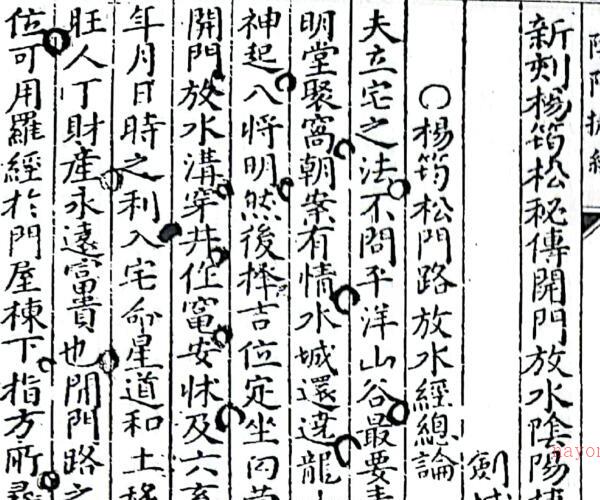 新刻楊筠松秘傳開門放水陰陽
劍
○楊筠松門路放水經總論
夫立宅之法不問平洋山谷最要
明堂聚窩朝案有情水城還遶龍
神起八將明然後擇吉位定坐向
開門放水溝穿井作竈安牀及六畜
年月日時之利入宅命星道和土
旺人丁財產永遠富貴也開門路之
位可用羅經於門屋棟下指方所尋